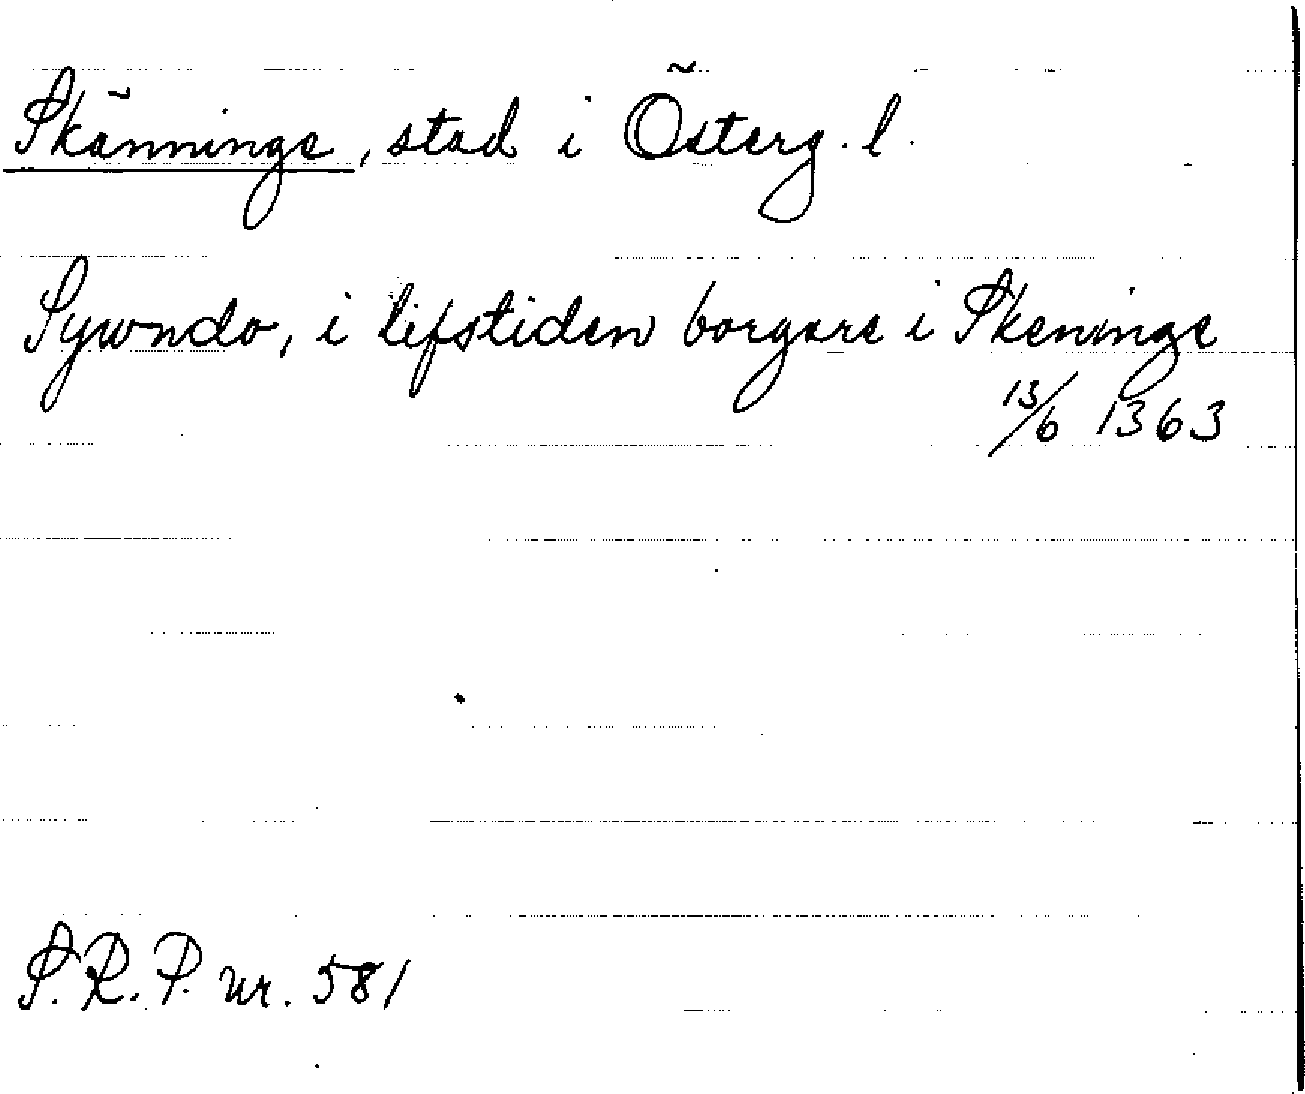 Skänninge, stad i Österg. l.
Sywndo, i lifstiden borgare i Skeninge
13/6 1363
S. R. P. nr. 581